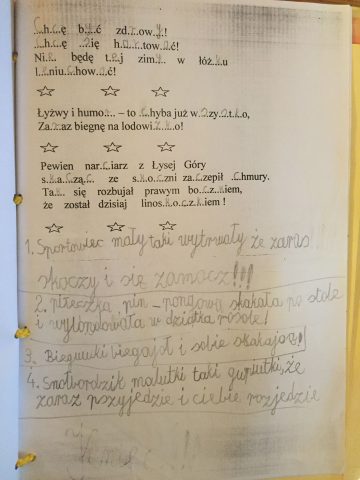 Chcę być zdrowy!
Chcę się hartować!
Nie będę tej zimy w łóżku
leniuchować!
Łyżwy i humor – to chyba już wszystko,
Zaraz biegnę na lodowisko!
Pewien narciarz z Łysej Góry
skacząc ze skoczni zaczepił chmury.
Tak się rozbujał prawym boczkiem,
że został dzisiaj linoskoczkiem!
1. Sportowiec mały taki wytrwały że zaras
skoczy i się zamocz!!!
2. piłeczka pin-pongową skakała po stole
i wylondowała w dziadka rosole!
3. Biegunki biegajoł i sobie skakajoł!
4. Snołbordzik malutki taki gupiutki, że
zaraz pszyjedzie i ciebie rozjedzie